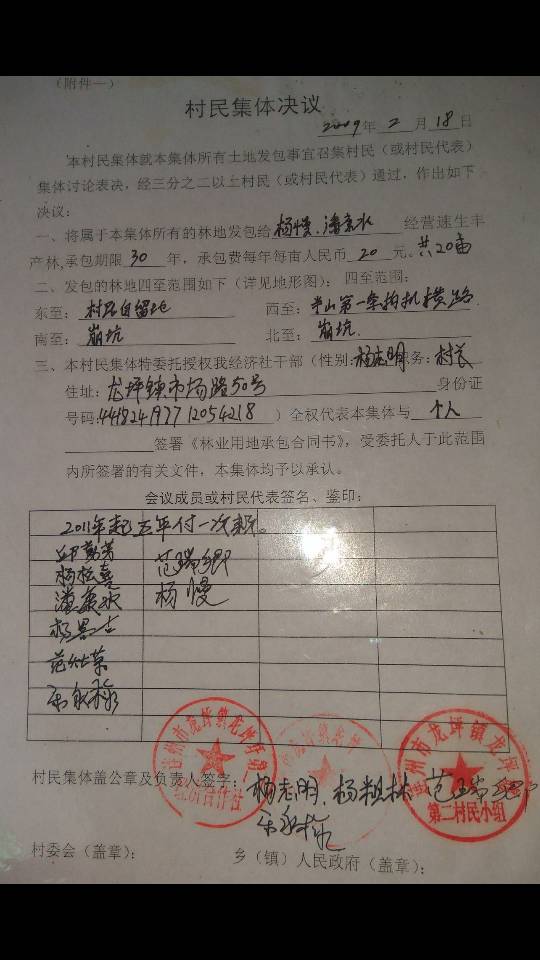 （附件一）
村民集体决议
2009年 2 月 18 日
本村民集体就本集体所有土地发包事宜召集村民（或村民代表）
集体讨论表决，经三分之二以上村民（或村民代表）通过，作出如下
决议：
一、将属于本集体所有的林地发包给 杨慢、潘 水 经营速生丰
产林，承包期限 30 年，承包费每年每亩人民币 20 元。共20亩
二、发包的林地四至范围如下（详见地形图）： 四至范围：
东至：村民自留地 西至：半山第一条钩机横路
南至：崩坑 北至：崩坑
三、本村民集体特委托授权我经济社干部（性别：杨志明 职务：村长
住址：龙坪镇市场路50号 身份证
号码： ）全权代表本集体与 个人
签署《林业用地承包合同书》，受委托人于此范围
内所签署的有关文件，本集体均予以承认。
会议成员或村民代表签名、鉴印：
2011年起五年付一次款。
范瑞卿
杨松喜 杨慢
村民集体盖公章及负责人签字：杨志明、杨 林 范瑞卿
村委会（盖章）： 乡（镇）人民政府（盖章）：
连州市龙坪镇龙坪
经济合作社
州市龙坪镇龙坪
第二村民小组